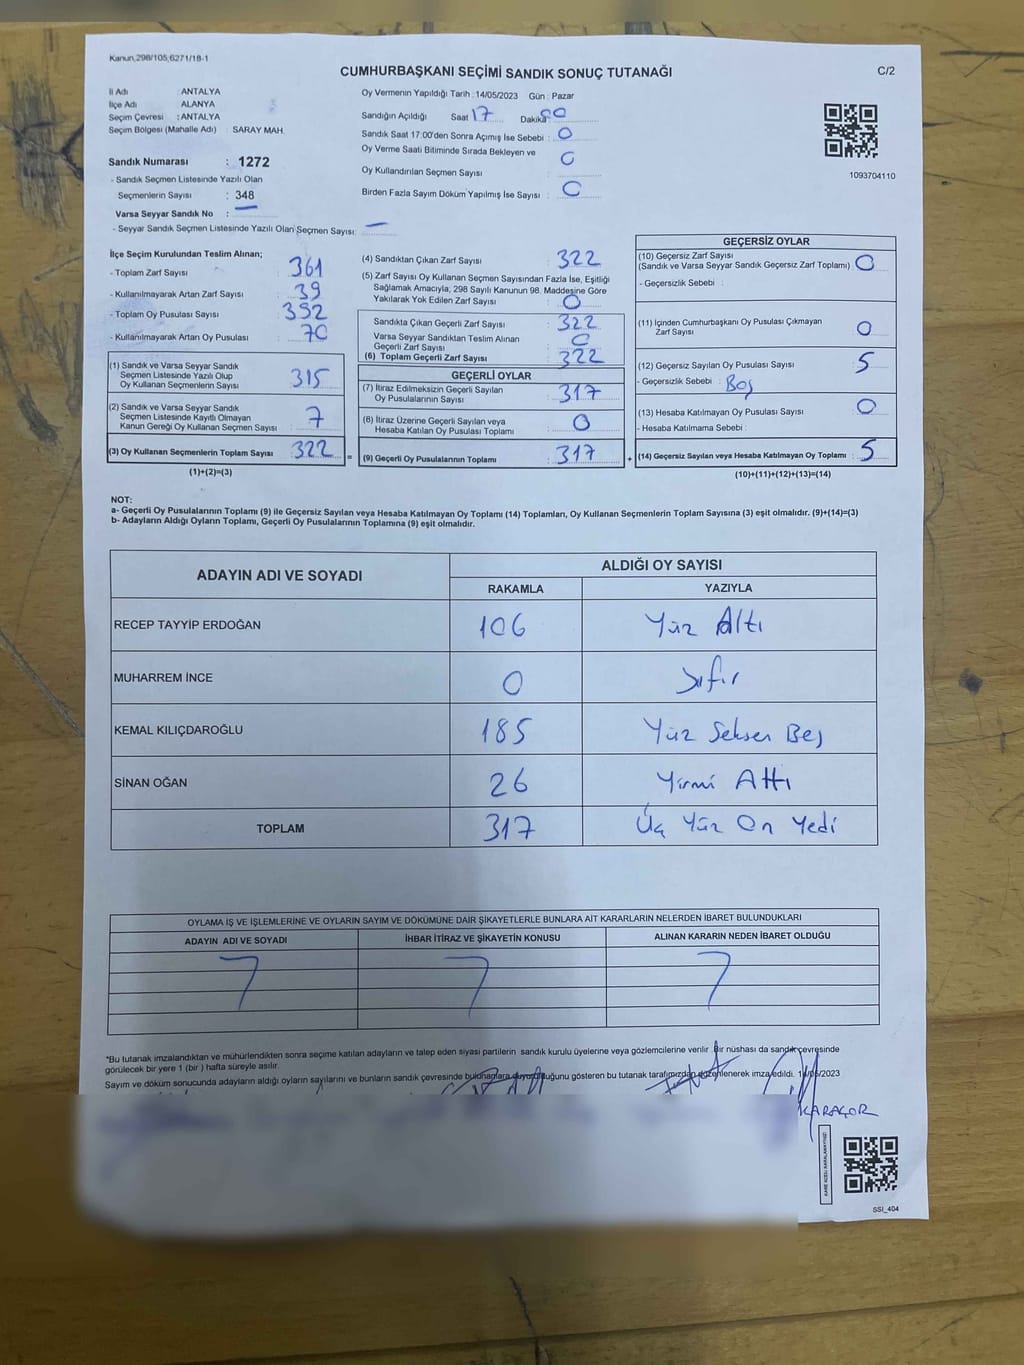 Kanun,298/105;6271/18-1
CUMHURBAŞKANI SEÇİMİ SANDIK SONUÇ TUTANAĞI
C/2
İl Adı : ANTALYA
İlçe Adı : ALANYA
Seçim Çevresi : ANTALYA
Seçim Bölgesi (Mahalle Adı) : SARAY MAH.
Sandık Numarası : 1272
- Sandık Seçmen Listesinde Yazılı Olan
Seçmenlerin Sayısı : 348
Varsa Seyyar Sandık No :
- Seyyar Sandık Seçmen Listesinde Yazılı Olan Seçmen Sayısı: —
Oy Vermenin Yapıldığı Tarih : 14/05/2023 Gün : Pazar
Sandığın Açıldığı Saat 17 Dakika 00
Sandık Saat 17:00'den Sonra Açımış İse Sebebi : 0
Oy Verme Saati Bitiminde Sırada Bekleyen ve
Oy Kullandırılan Seçmen Sayısı : 0
Birden Fazla Sayım Döküm Yapılmış İse Sayısı : 0
1093704110
İlçe Seçim Kurulundan Teslim Alınan;
- Toplam Zarf Sayısı : 361
- Kullanılmayarak Artan Zarf Sayısı : 39
- Toplam Oy Pusulası Sayısı : 392
- Kullanılmayarak Artan Oy Pusulası : 70
(1) Sandık ve Varsa Seyyar Sandık
Seçmen Listesinde Yazılı Olup
Oy Kullanan Seçmenlerin Sayısı : 315
(2) Sandık ve Varsa Seyyar Sandık
Seçmen Listesinde Kayıtlı Olmayan
Kanun Gereği Oy Kullanan Seçmen Sayısı : 7
(3) Oy Kullanan Seçmenlerin Toplam Sayısı : 322
(1)+(2)=(3)
(4) Sandıktan Çıkan Zarf Sayısı : 322
(5) Zarf Sayısı Oy Kullanan Seçmen Sayısından Fazla İse, Eşitliği
Sağlamak Amacıyla, 298 Sayılı Kanunun 98. Maddesine Göre
Yakılarak Yok Edilen Zarf Sayısı : 0
Sandıkta Çıkan Geçerli Zarf Sayısı : 322
Varsa Seyyar Sandıktan Teslim Alınan
Geçerli Zarf Sayısı : 0
(6) Toplam Geçerli Zarf Sayısı : 322
GEÇERLİ OYLAR
(7) İtiraz Edilmeksizin Geçerli Sayılan
Oy Pusulalarının Sayısı : 317
(8) İtiraz Üzerine Geçerli Sayılan veya
Hesaba Katılan Oy Pusulası Toplamı : 0
= (9) Geçerli Oy Pusulalarının Toplamı : 317
GEÇERSİZ OYLAR
(10) Geçersiz Zarf Sayısı
(Sandık ve Varsa Seyyar Sandık Geçersiz Zarf Toplamı) : 0
- Geçersizlik Sebebi :
(11) İçinden Cumhurbaşkanı Oy Pusulası Çıkmayan
Zarf Sayısı : 0
(12) Geçersiz Sayılan Oy Pusulası Sayısı : 5
- Geçersizlik Sebebi : Boş
(13) Hesaba Katılmayan Oy Pusulası Sayısı : 0
- Hesaba Katılmama Sebebi :
+ (14) Geçersiz Sayılan veya Hesaba Katılmayan Oy Toplamı : 5
(10)+(11)+(12)+(13)=(14)
NOT:
a- Geçerli Oy Pusulalarının Toplamı (9) ile Geçersiz Sayılan veya Hesaba Katılmayan Oy Toplamı (14) Toplamları, Oy Kullanan Seçmenlerin Toplam Sayısına (3) eşit olmalıdır. (9)+(14)=(3)
b- Adayların Aldığı Oyların Toplamı, Geçerli Oy Pusulalarının Toplamına (9) eşit olmalıdır.
ADAYIN ADI VE SOYADI
ALDIĞI OY SAYISI
RAKAMLA YAZIYLA
RECEP TAYYİP ERDOĞAN 106 Yüz Altı
MUHARREM İNCE 0 Sıfır
KEMAL KILIÇDAROĞLU 185 Yüz Seksen Beş
SİNAN OĞAN 26 Yirmi Altı
TOPLAM 317 Üç Yüz On Yedi
OYLAMA İŞ VE İŞLEMLERİNE VE OYLARIN SAYIM VE DÖKÜMÜNE DAİR ŞİKAYETLERLE BUNLARA AİT KARARLARIN NELERDEN İBARET BULUNDUKLARI
ADAYIN ADI VE SOYADI İHBAR İTİRAZ VE ŞİKAYETİN KONUSU ALINAN KARARIN NEDEN İBARET OLDUĞU
*Bu tutanak imzalandıktan ve mühürlendikten sonra seçime katılan adayların ve talep eden siyasi partilerin sandık kurulu üyelerine veya gözlemcilerine verilir. Bir nüshası da sandık çevresinde
görülecek bir yere 1 (bir ) hafta süreyle asılır.
Sayım ve döküm sonucunda adayların aldığı oyların sayılarını ve bunların sandık çevresinde bulunanlara duyurulduğunu gösteren bu tutanak tarafımızdan düzenlenerek imza edildi. 14/05/2023
KARAGÖR
SSI_404